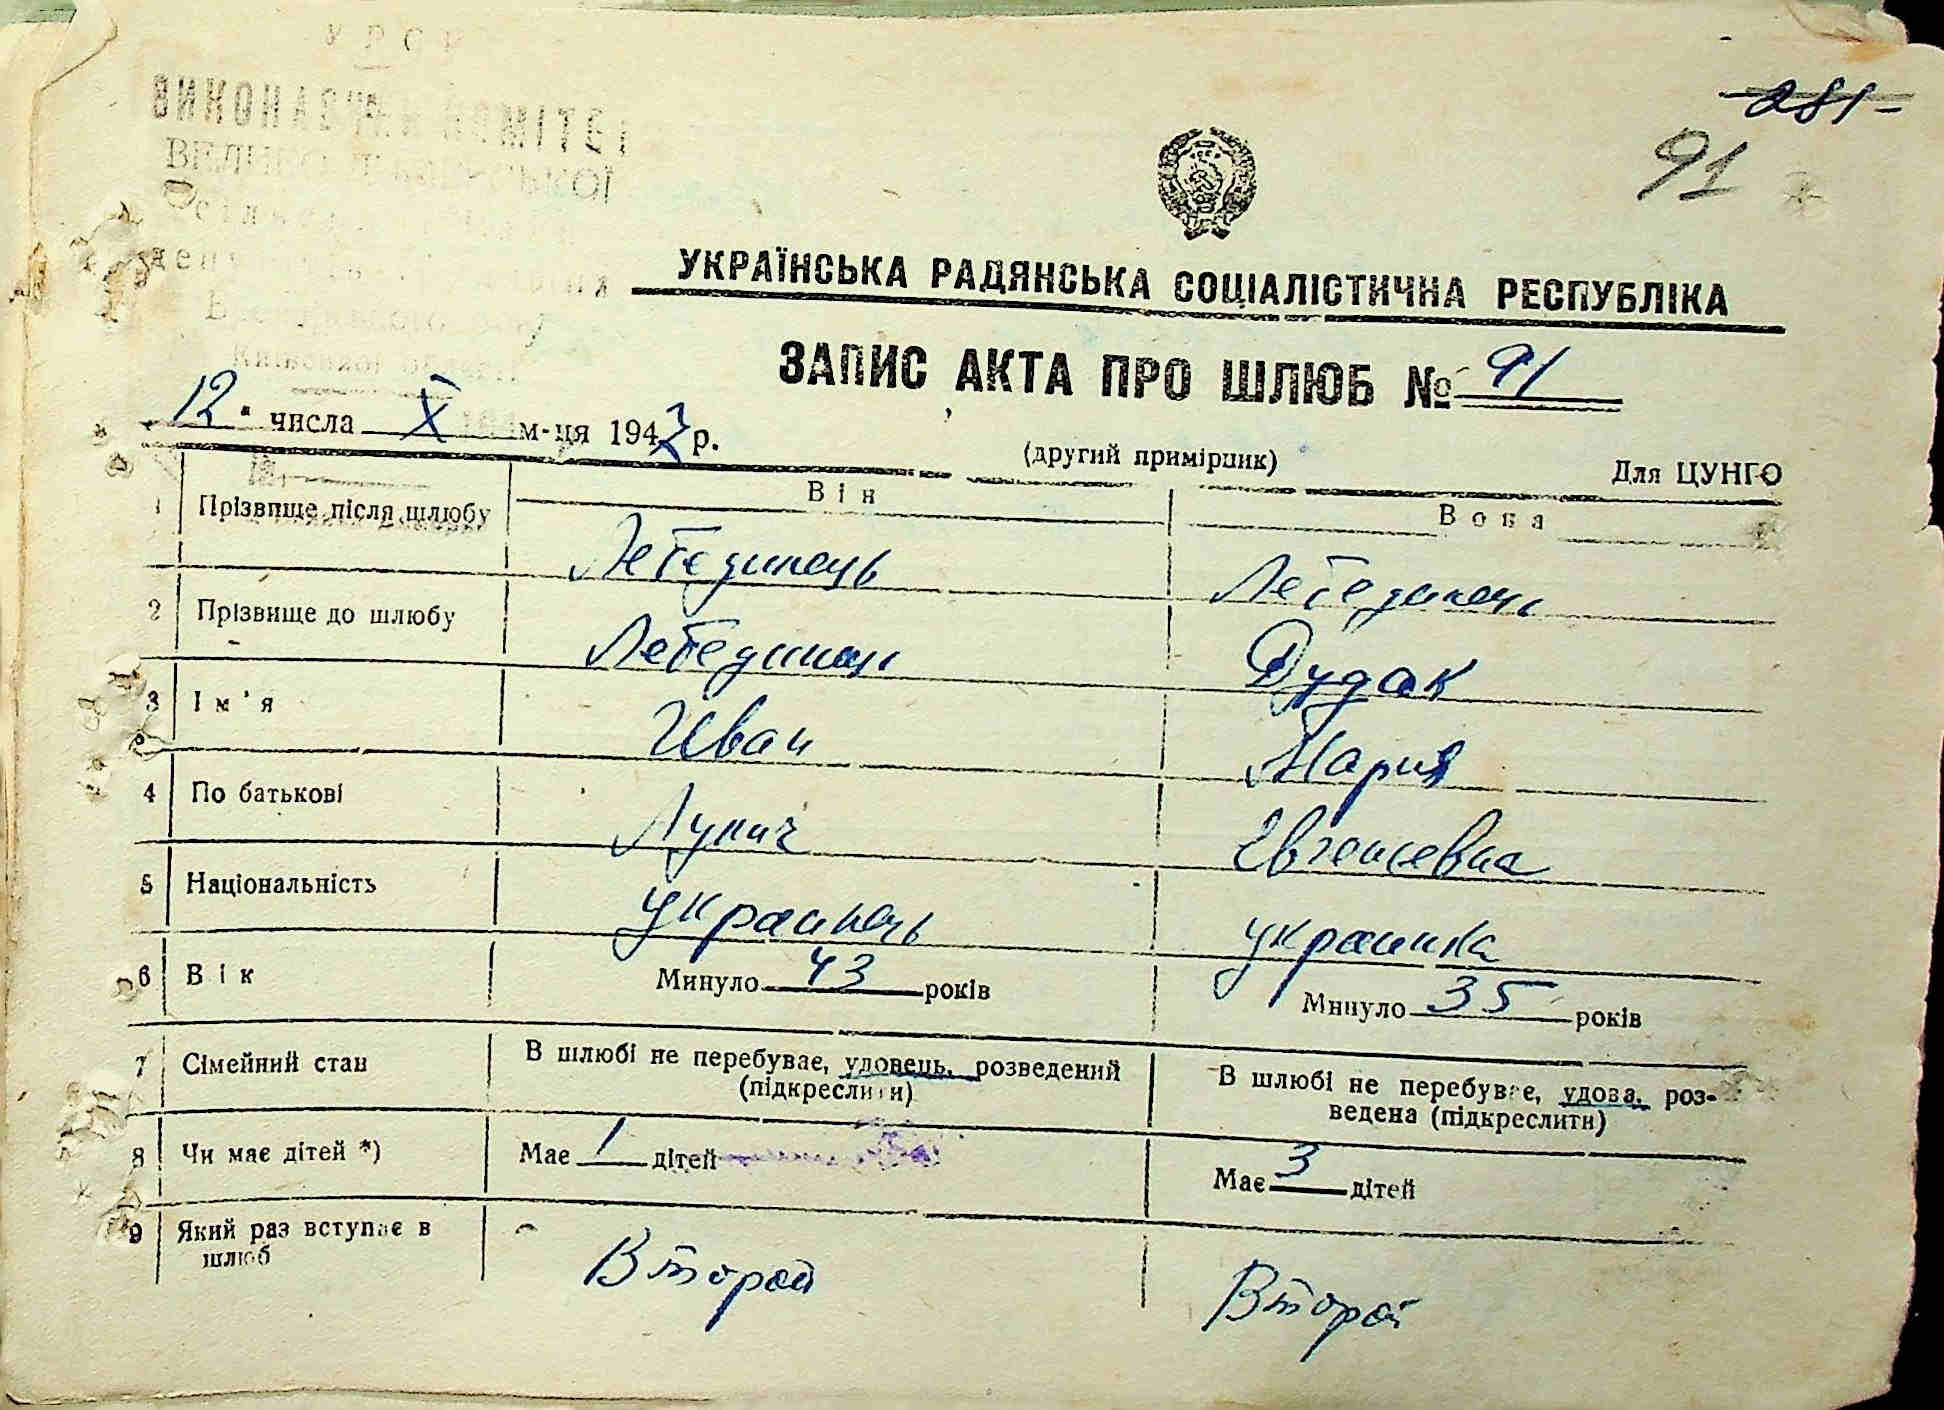 УРСР
ВИКОНАВЧИЙ КОМІТЕТ
281
91
УКРАЇНСЬКА РАДЯНСЬКА СОЦІАЛІСТИЧНА РЕСПУБЛІКА
ЗАПИС АКТА ПРО ШЛЮБ № 91
12 числа X м-ця 1947 р.
(другий примірник)
Для ЦУНГО
Він
Вона
1 Прізвище після шлюбу Лебединець Лебединець
2 Прізвище до шлюбу Лебединець Дудак
3 Ім'я Иван Мария
4 По батькові Лукич Евгеньевна
5 Національність украинець украинка
6 Вік Минуло 43 років Минуло 35 років
7 Сімейний стан В шлюбі не перебуває, удовець, розведений (підкреслити) В шлюбі не перебуває, удова, розведена (підкреслити)
8 Чи має дітей *) Має 1 дітей Має 3 дітей
9 Який раз вступає в шлюб Второй Второй